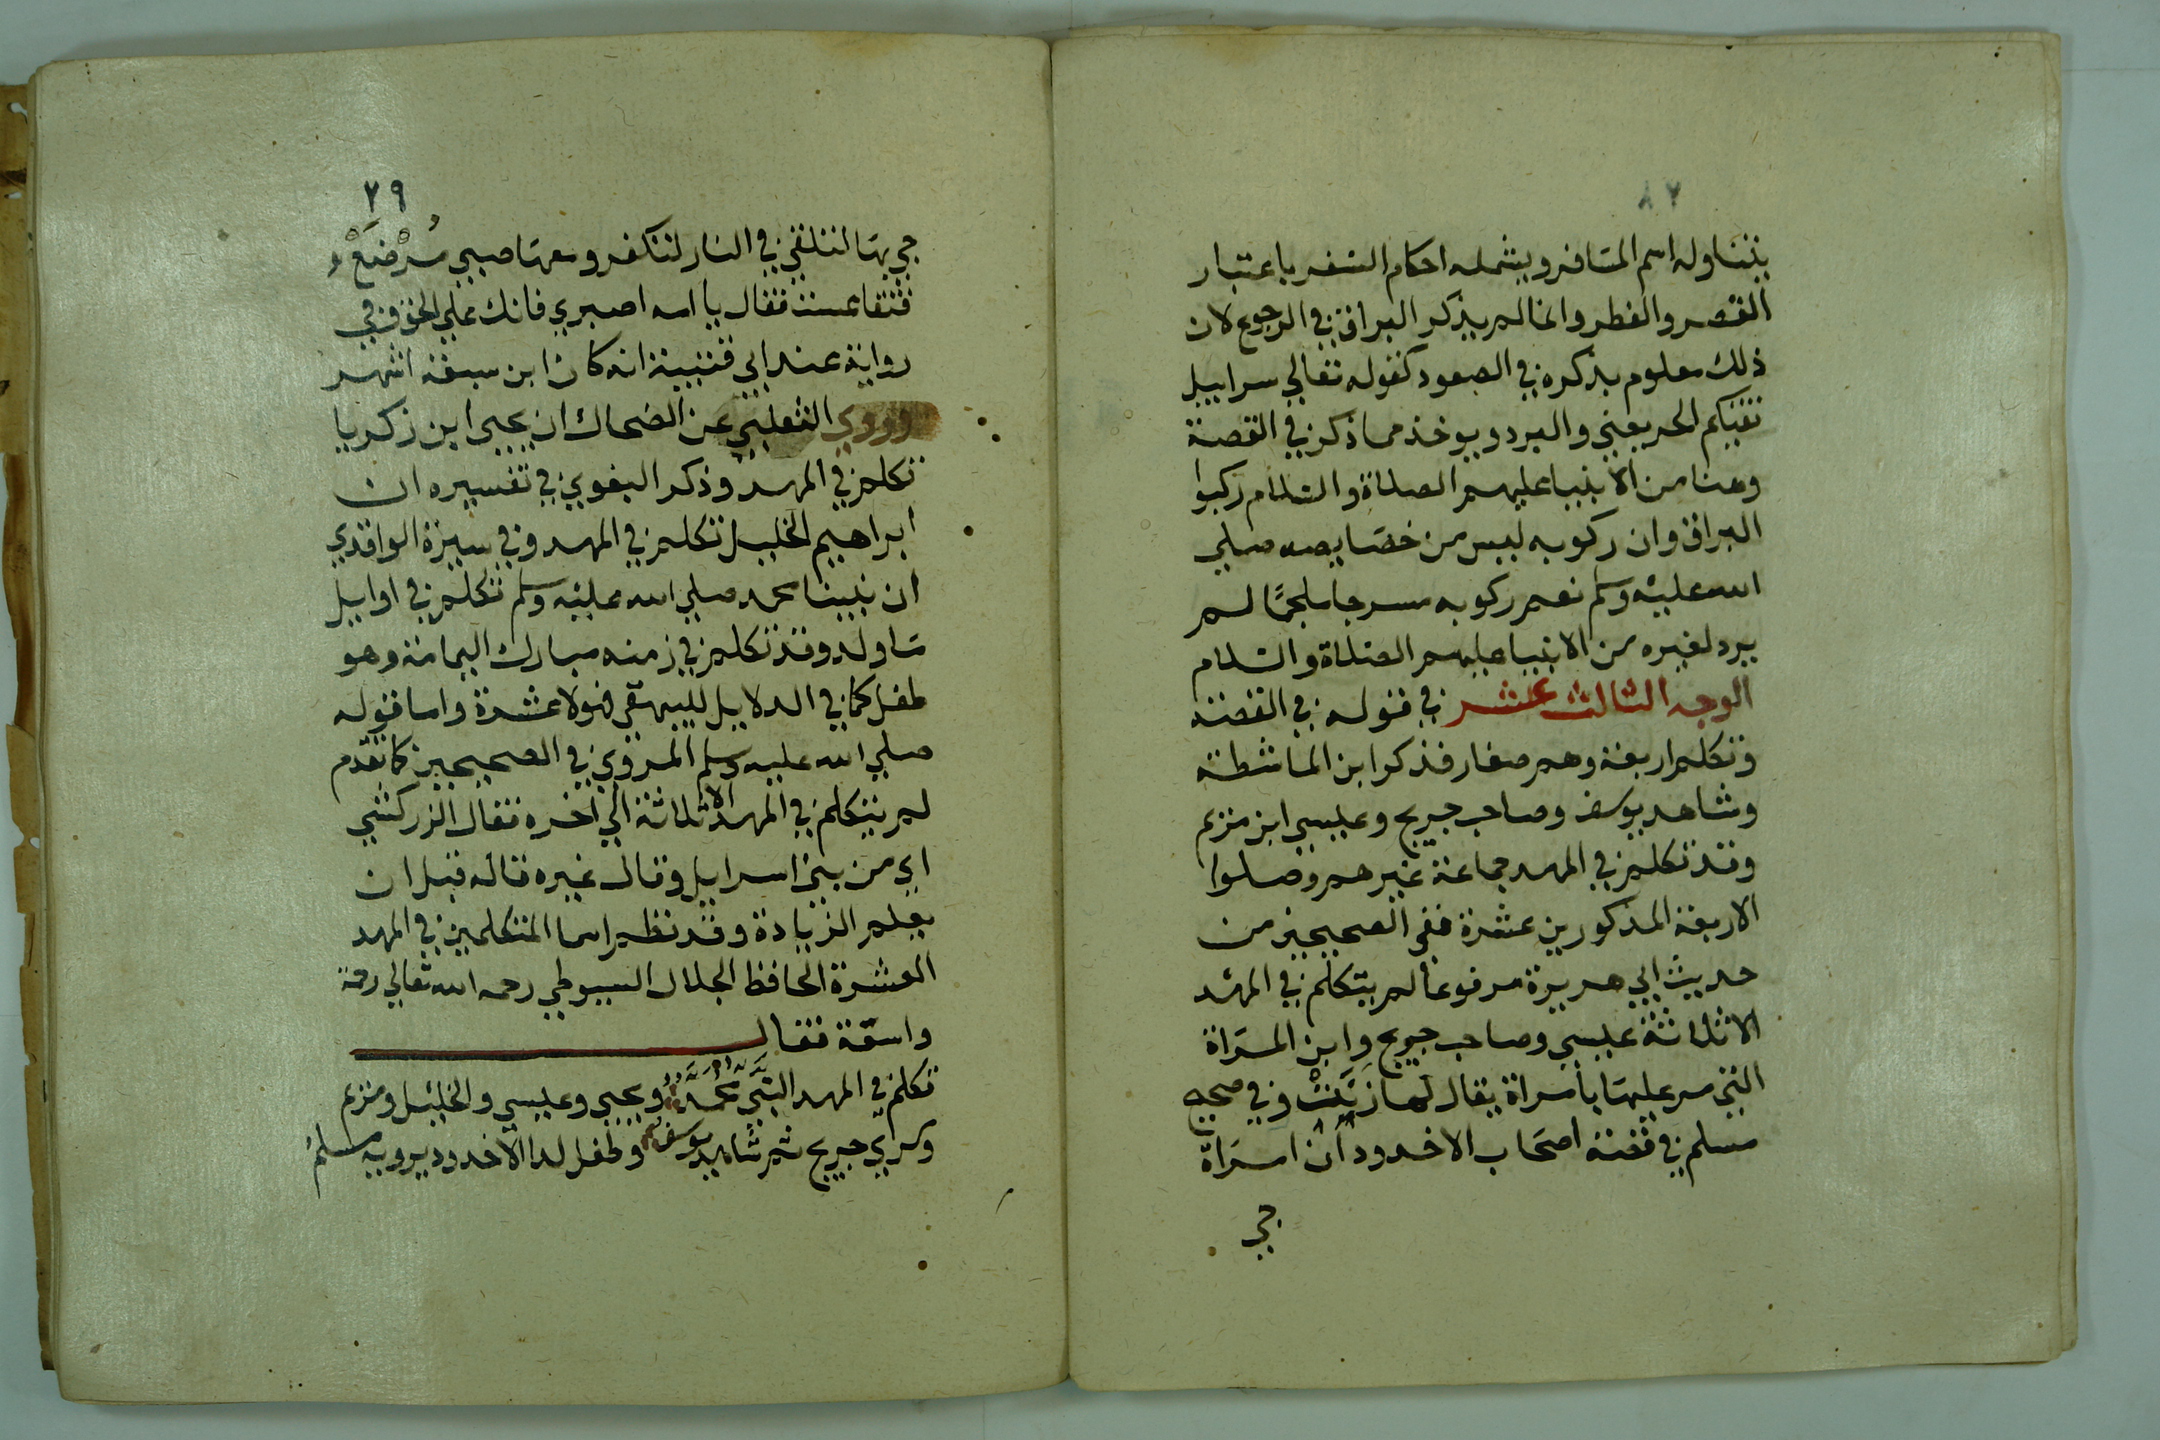 ٢٨
يتناوله اسم المسافر ويشمله احكام السفر باعتبار
القصر والفطر وانما لم يذكر البراق في الرجوع لان
ذلك معلوم بذكره في الصعود كقوله تعالي سرابيل
تقيكم الحر يعني والبرد ويوخذ مما ذكر في القصة
وهنا من الانبيا عليهم الصلاة والسلام ركبوا
البراق وان ركوبه ليس من خصايصه صلي
الله عليه وسلم نعم ركوبه مسرجا ملجمًا لم
يرد لغيره من الانبيا عليهم الصلاة والسلام
الوجه الثالث عشر في قوله في القصة
وتكلم اربعة وهم صغار فذكر ابن الماشطة
وشاهد يوسف وصاحب جريج وعيسي ابن مريم
وقد تكلم في المهد جماعة غيرهم وصلوا
الاربعة المذكورين عشرة ففي الصحيحين من
حديث ابي هريرة مرفوعا لم يتكلم في المهد
الا ثلاثة عيسي وصاحب جريج وابن المراة
التي مر عليها بامراة يقال لها زَنَيْتْ وفي صحيح
مسلم في قصة اصحاب الاخدود أن امراة
جي
٢٩
جي بها لتلقي في النار لتكفر ومعها صبي مُرْضَعْ
فتقاعست فقال يا امه اصبري فانك علي الحق وفي
رواية عند ابي قتيبة انه كان ابن سبعة اشهر
وروي الثعلبي عن الضحاك ان يحيي ابن زكريا
تكلم في المهد وذكر البغوي في تفسيره ان
ابراهيم الخليل تكلم في المهد وفي سيرة الواقدي
ان نبينا محمد صلي الله عليه وسلم تكلم في اوايل
ما ولد وقد تكلم في زمنه مبارك اليمامة وهو
طفل كما في الدلايل للبيهقي فهولا عشرة واما قوله
صلي الله عليه وسلم المروي في الصحيحين كما تقدم
لم يتكلم في المهد الا ثلاثة الي اخره فقال الزركشي
اي من بني اسراييل وقال غيره قاله قبل ان
يعلم الزيادة وقد نظم اسما المتكلمين في المهد
العشرة الحافظ الجلال السيوطي رحمه الله تعالي رحمة
واسعة فقال
تكلم في المهد النبيَّ محمدٌ ويحيي وعيسي والخليل ومريم
ومبري جريج ثم شاهد يوسف وطفل لدا الاخدود يرويه مسلمُ